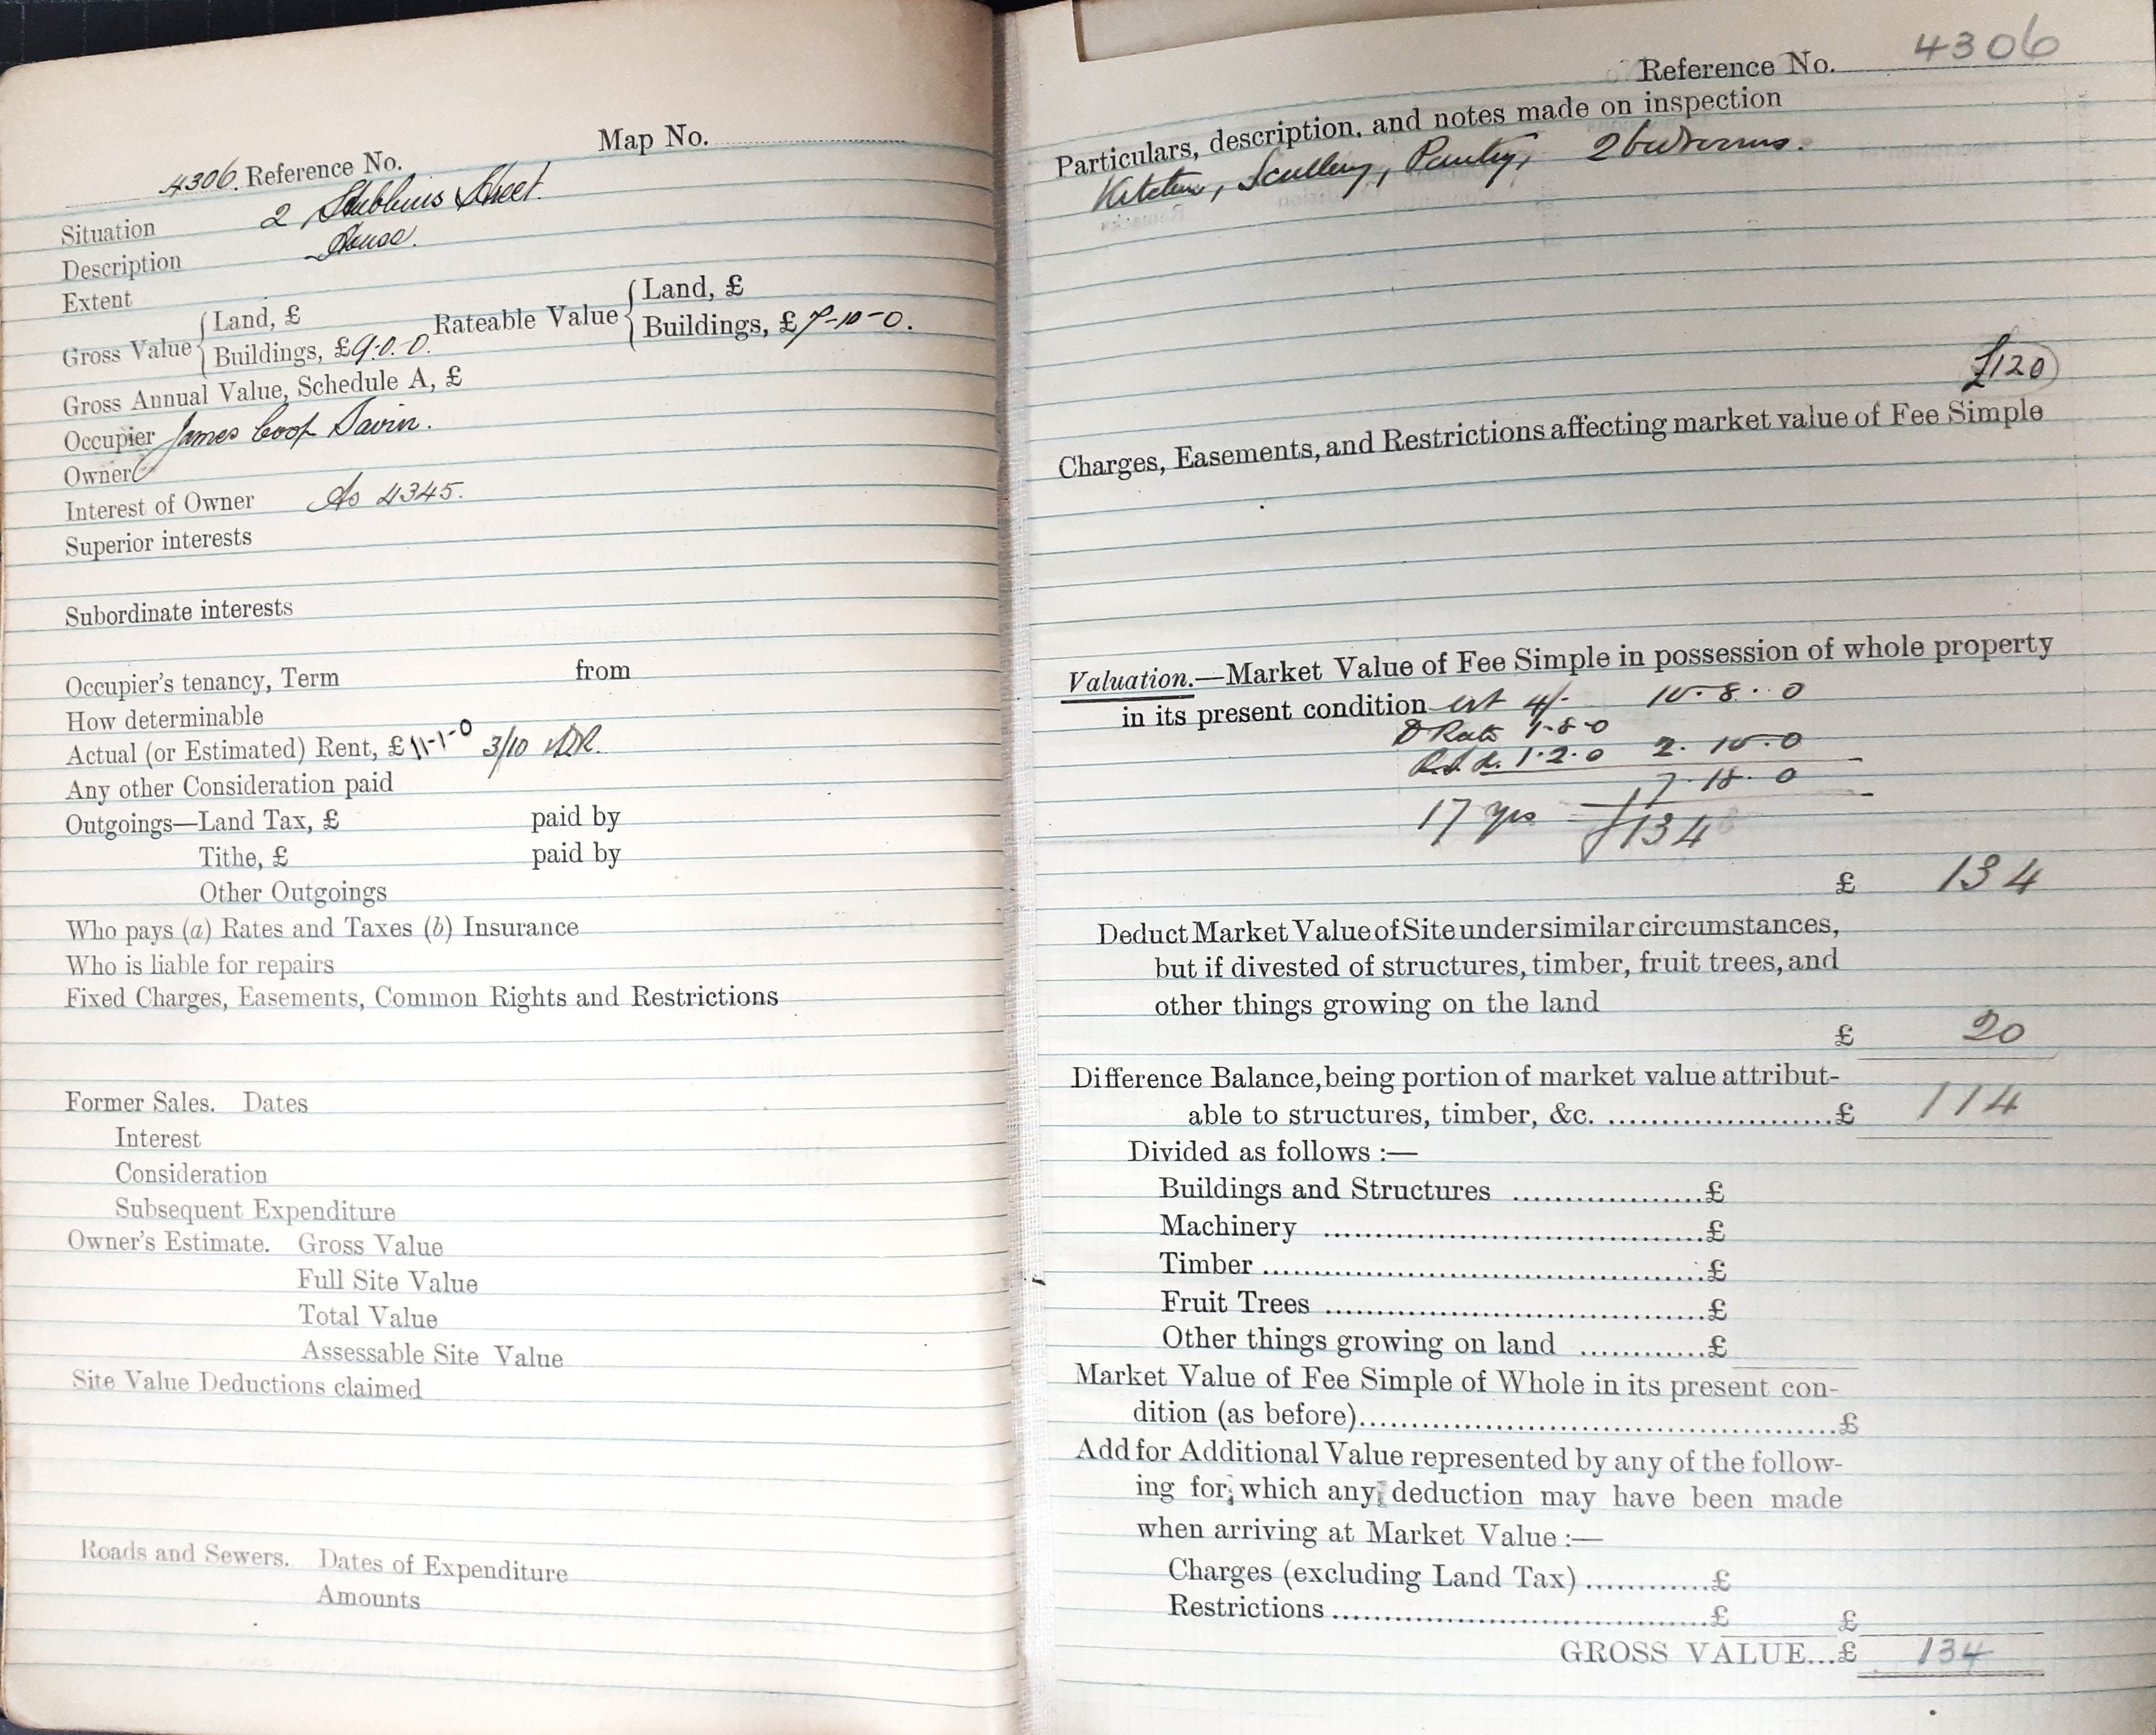 Map No.
4306. Reference No.
Situation 2 Stubbins Street.
Description House.
Extent
Gross Value { Land, £
Buildings, £9.0.0. Rateable Value { Land, £
Buildings, £7-10-0.
Gross Annual Value, Schedule A, £
Occupier James Coop Savin.
Owner
Interest of Owner As 4345.
Superior interests
Subordinate interests
Occupier's tenancy, Term from
How determinable
Actual (or Estimated) Rent, £11-1-0 3/10
Any other Consideration paid
Outgoings—Land Tax, £ paid by
Tithe, £ paid by
Other Outgoings
Who pays (a) Rates and Taxes (b) Insurance
Who is liable for repairs
Fixed Charges, Easements, Common Rights and Restrictions
Former Sales. Dates
Interest
Consideration
Subsequent Expenditure
Owner's Estimate. Gross Value
Full Site Value
Total Value
Assessable Site Value
Site Value Deductions claimed
Roads and Sewers. Dates of Expenditure
Amounts
Reference No. 4306
Particulars, description, and notes made on inspection
Kitchen, Scullery, Pantry, 2 bedrooms.
£120
Charges, Easements, and Restrictions affecting market value of Fee Simple
Valuation.—Market Value of Fee Simple in possession of whole property
in its present condition est 4/- 10-8..0
Rates 1-8-0
1.2.0 2.10.0
7.18.0
17 yrs £134
£ 134
Deduct Market Value of Site under similar circumstances,
but if divested of structures, timber, fruit trees, and
other things growing on the land
£ 20
Difference Balance, being portion of market value attribut-
able to structures, timber, &c. ......................£ 114
Divided as follows :—
Buildings and Structures ...................£
Machinery .....................................£
Timber ...........................................£
Fruit Trees .....................................£
Other things growing on land ............£
Market Value of Fee Simple of Whole in its present con-
dition (as before)...............................................£
Add for Additional Value represented by any of the follow-
ing for which any deduction may have been made
when arriving at Market Value :—
Charges (excluding Land Tax) ............£
Restrictions .....................................£ £
GROSS VALUE...£ 134